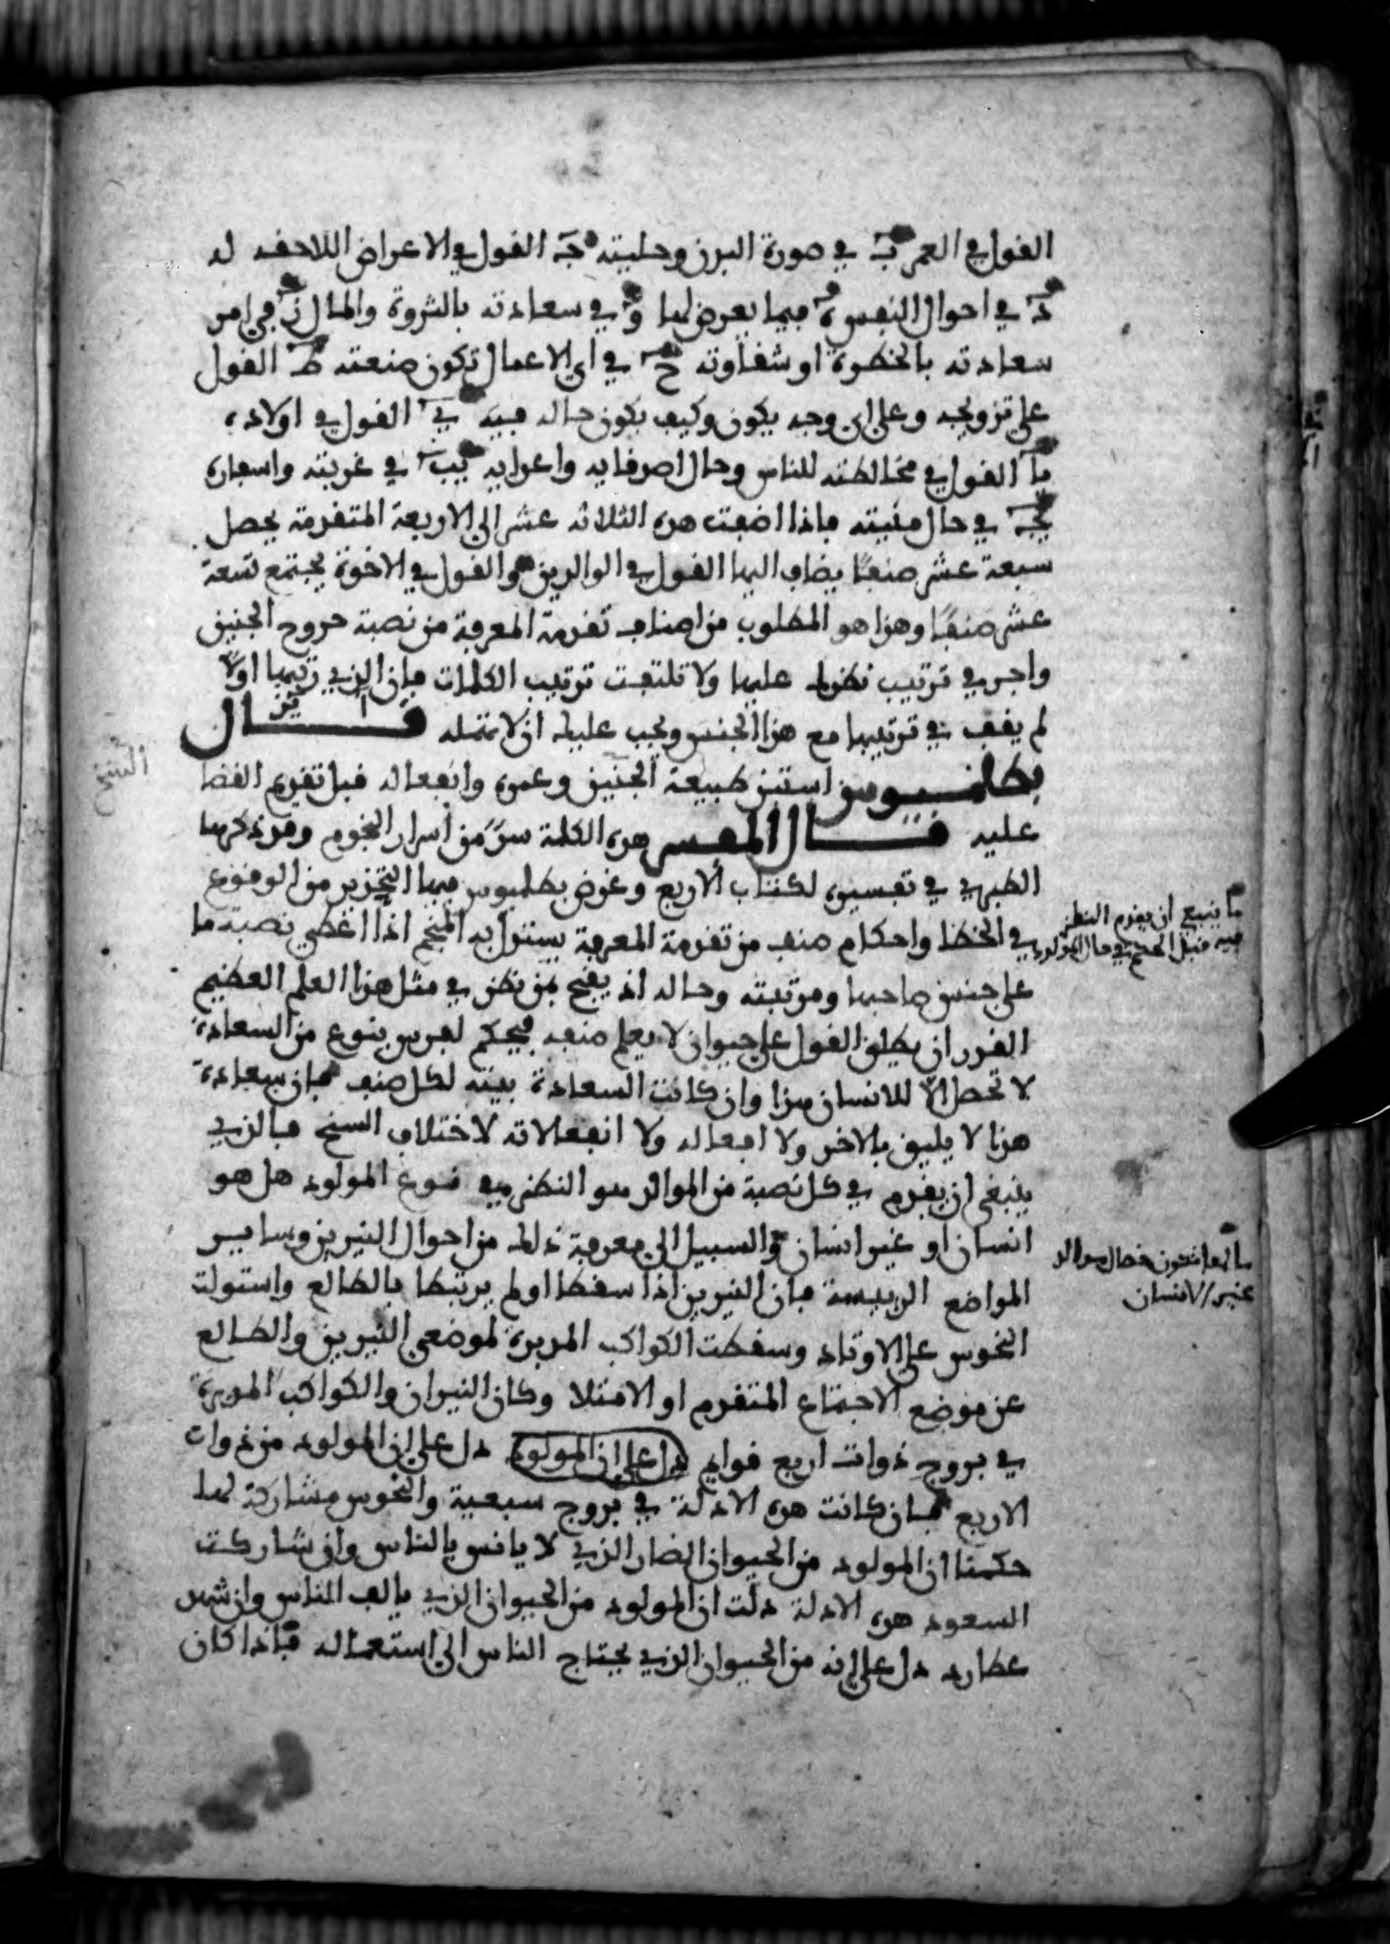 القول في العمر بَ في صورة البدن وحليته جَ القول في الاعراض اللاحقه له
دَ في احوال النفس هَ فيما يعرض لها وَ في سعادته بالثروة والمال زَ في امر
سعادته بالحظوة او شقاوته حَ في اي الاعمال تكون صنعته طَ القول
على تزويجه وعلى اي وجه يكون وكيف يكون حاله فيه يَ القول في اولاده
يآ القول في مخالطته للناس وحال اصدقايه واعدايه يبَ في غربته واسفاره
يجَ في حال منيته فاذا اضفت هذه الثلاثه عشر الى الاربعة المتقدمة يحصل
سبعة عشر صنفا يضاف اليها القول في الوالدين والقول في الاخوة يجتمع تسعة
عشر صنفا وهذا هو المطلوب من اصناف تقدمة المعرفة من نصبة خروج الجنين
واجر في ترتيب نظرك عليها ولا تلتفت ترتيب الكلمات فان الذي رتبها اولا
لم يقف في ترتيبها مع هذا الجنس ويجب عليك ان لا تمتثله قــــال
بطلميوس استثن طبيعة الجنين وعمره وانفعاله قبل تقديم القضا
عليه قــــال المفسر هذه الكلمة سر من أسرار النجوم وقد ذكرها
الطبري في تفسيره لكتاب الاربع وغرض بطلميوس فيها التحذير من الوقوع
في الخطا واحكام صنف من تقدمة المعرفة يستدل به المنجم اذا اعطي نصبة ما
على جنس صاحبها ومرتبته وحاله اذ يقبح بمن نظر في مثل هذا العلم العظيم
القدر ان يطلق القول على حيوان لا يعلم صنفه فيحكم لفرس بنوع من السعادة
لا تحصل الا للانسان هذا وان كانت السعادة بينه لكل صنف فان سعادة
هذا لا يليق بالاخر ولا افعاله ولا انفعالاته لاختلاف السنخ فالذي
ينبغي ان يقدم في كل نصبة من المواليد هو النظر في نوع المولود هل هو
انسان او غير انسان والسبيل الى معرفة ذلك من احوال النيرين وساير
المواضع الرييسة فان النيرين اذا سقطا او لم يرتبطا بالطالع واستولت
النحوس على الاوتاد وسقطت الكواكب المدبرة لموضعي النيرين والطالع
عن موضع الاجتماع المتقدم او الامتلا وكان النيران والكواكب المدبرة
في بروج ذوات اربع قوايم دل على ان المولود دل على ان المولود من ذوات
الاربع فان كانت هذه الادلة في بروج سبعية والنحوس مشاركة لها
حكمنا ان المولود من الحيوان الضار الذي لا يانس بالناس وان شاركت
السعود هذه الادلة دلت ان المولود من الحيوان الذي يالف الناس وان شهد
عطارد دل على انه من الحيوان الذي يحتاج الناس الى استعماله فاذا كان
ما ينبغي ان يقدم النظر
فيه قبل الحكم في حال المولود
غير الانسان